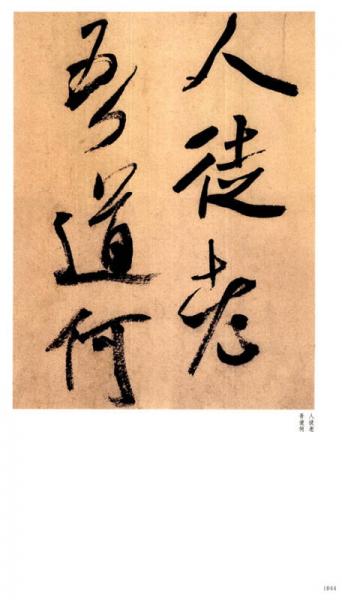 人徒老
吾道何
人徒老
吾道何
1044